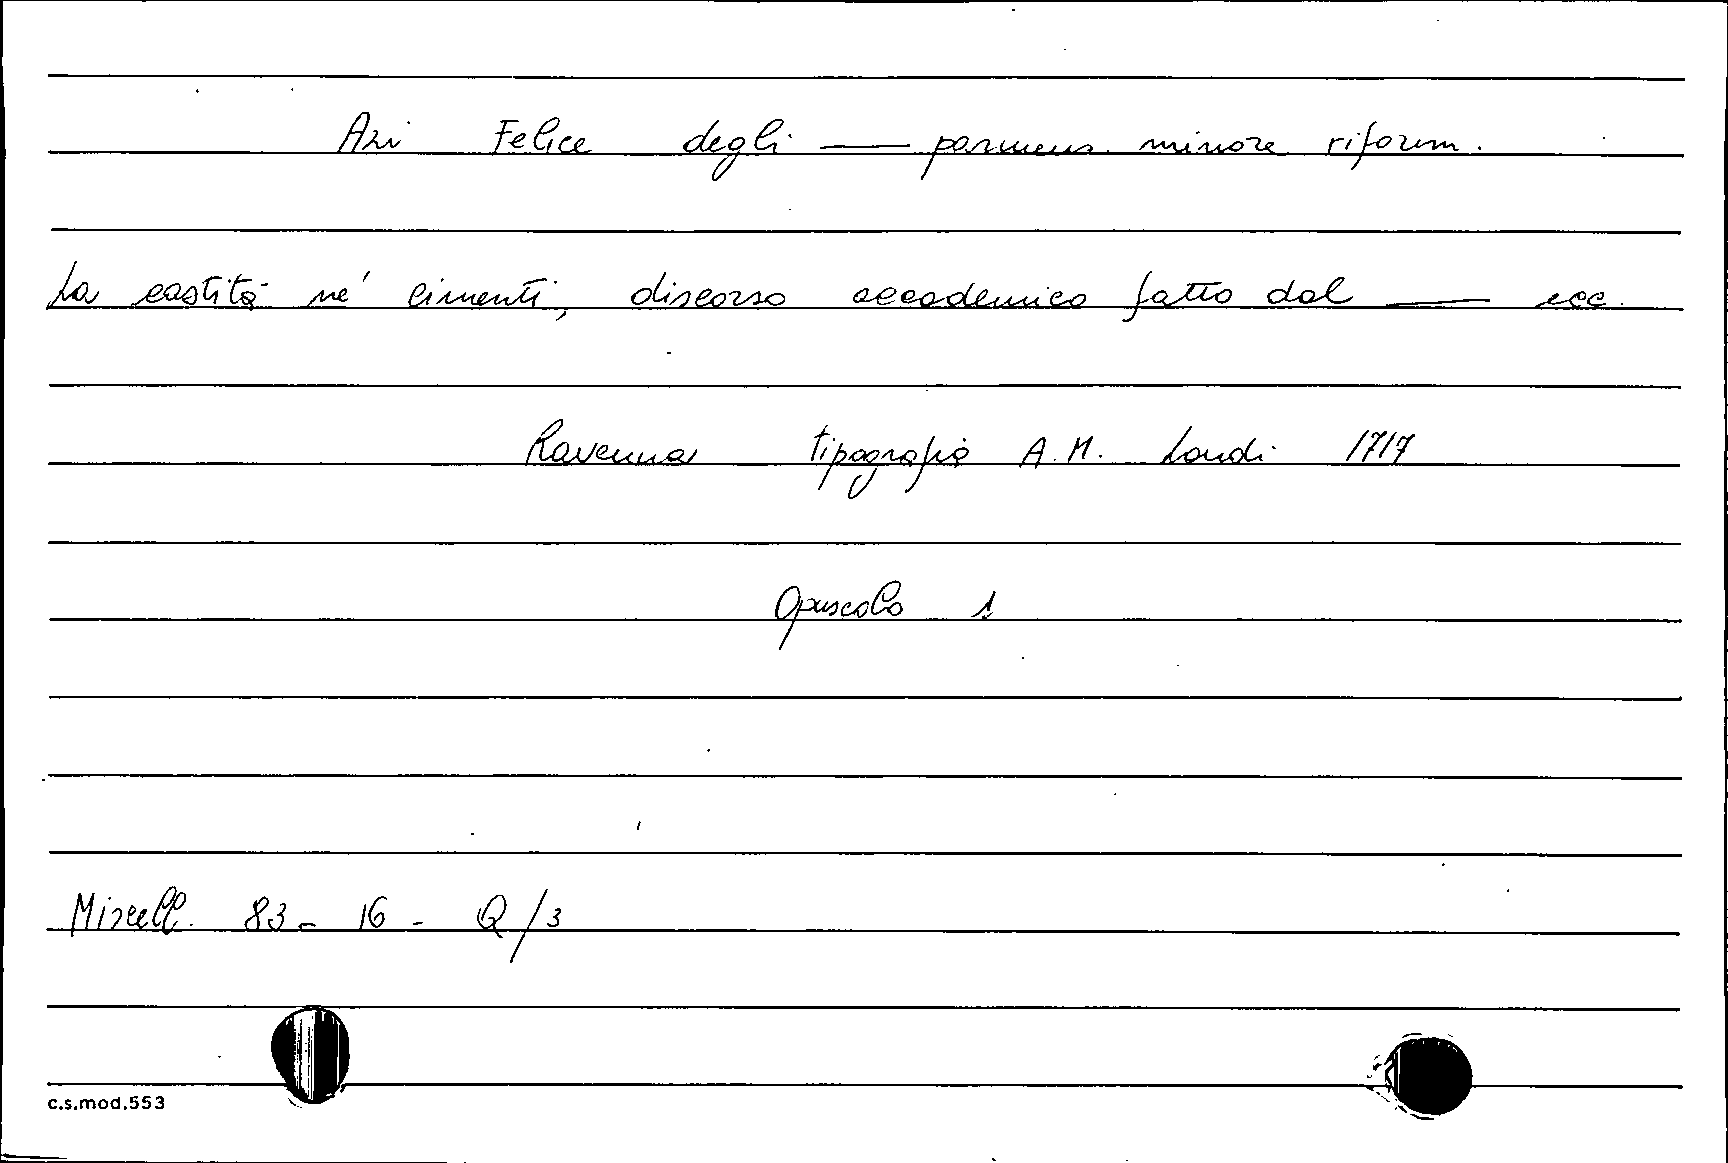 Azi Felice degli —— parmens. minore riform.
La castità né cimenti, discorso accademico fatto dal —— ecc.
Ravenna tipografia A. M. Landi 1717
Opuscolo 1
Miscell. 83 - 16 - Q/3
c.s.mod.553